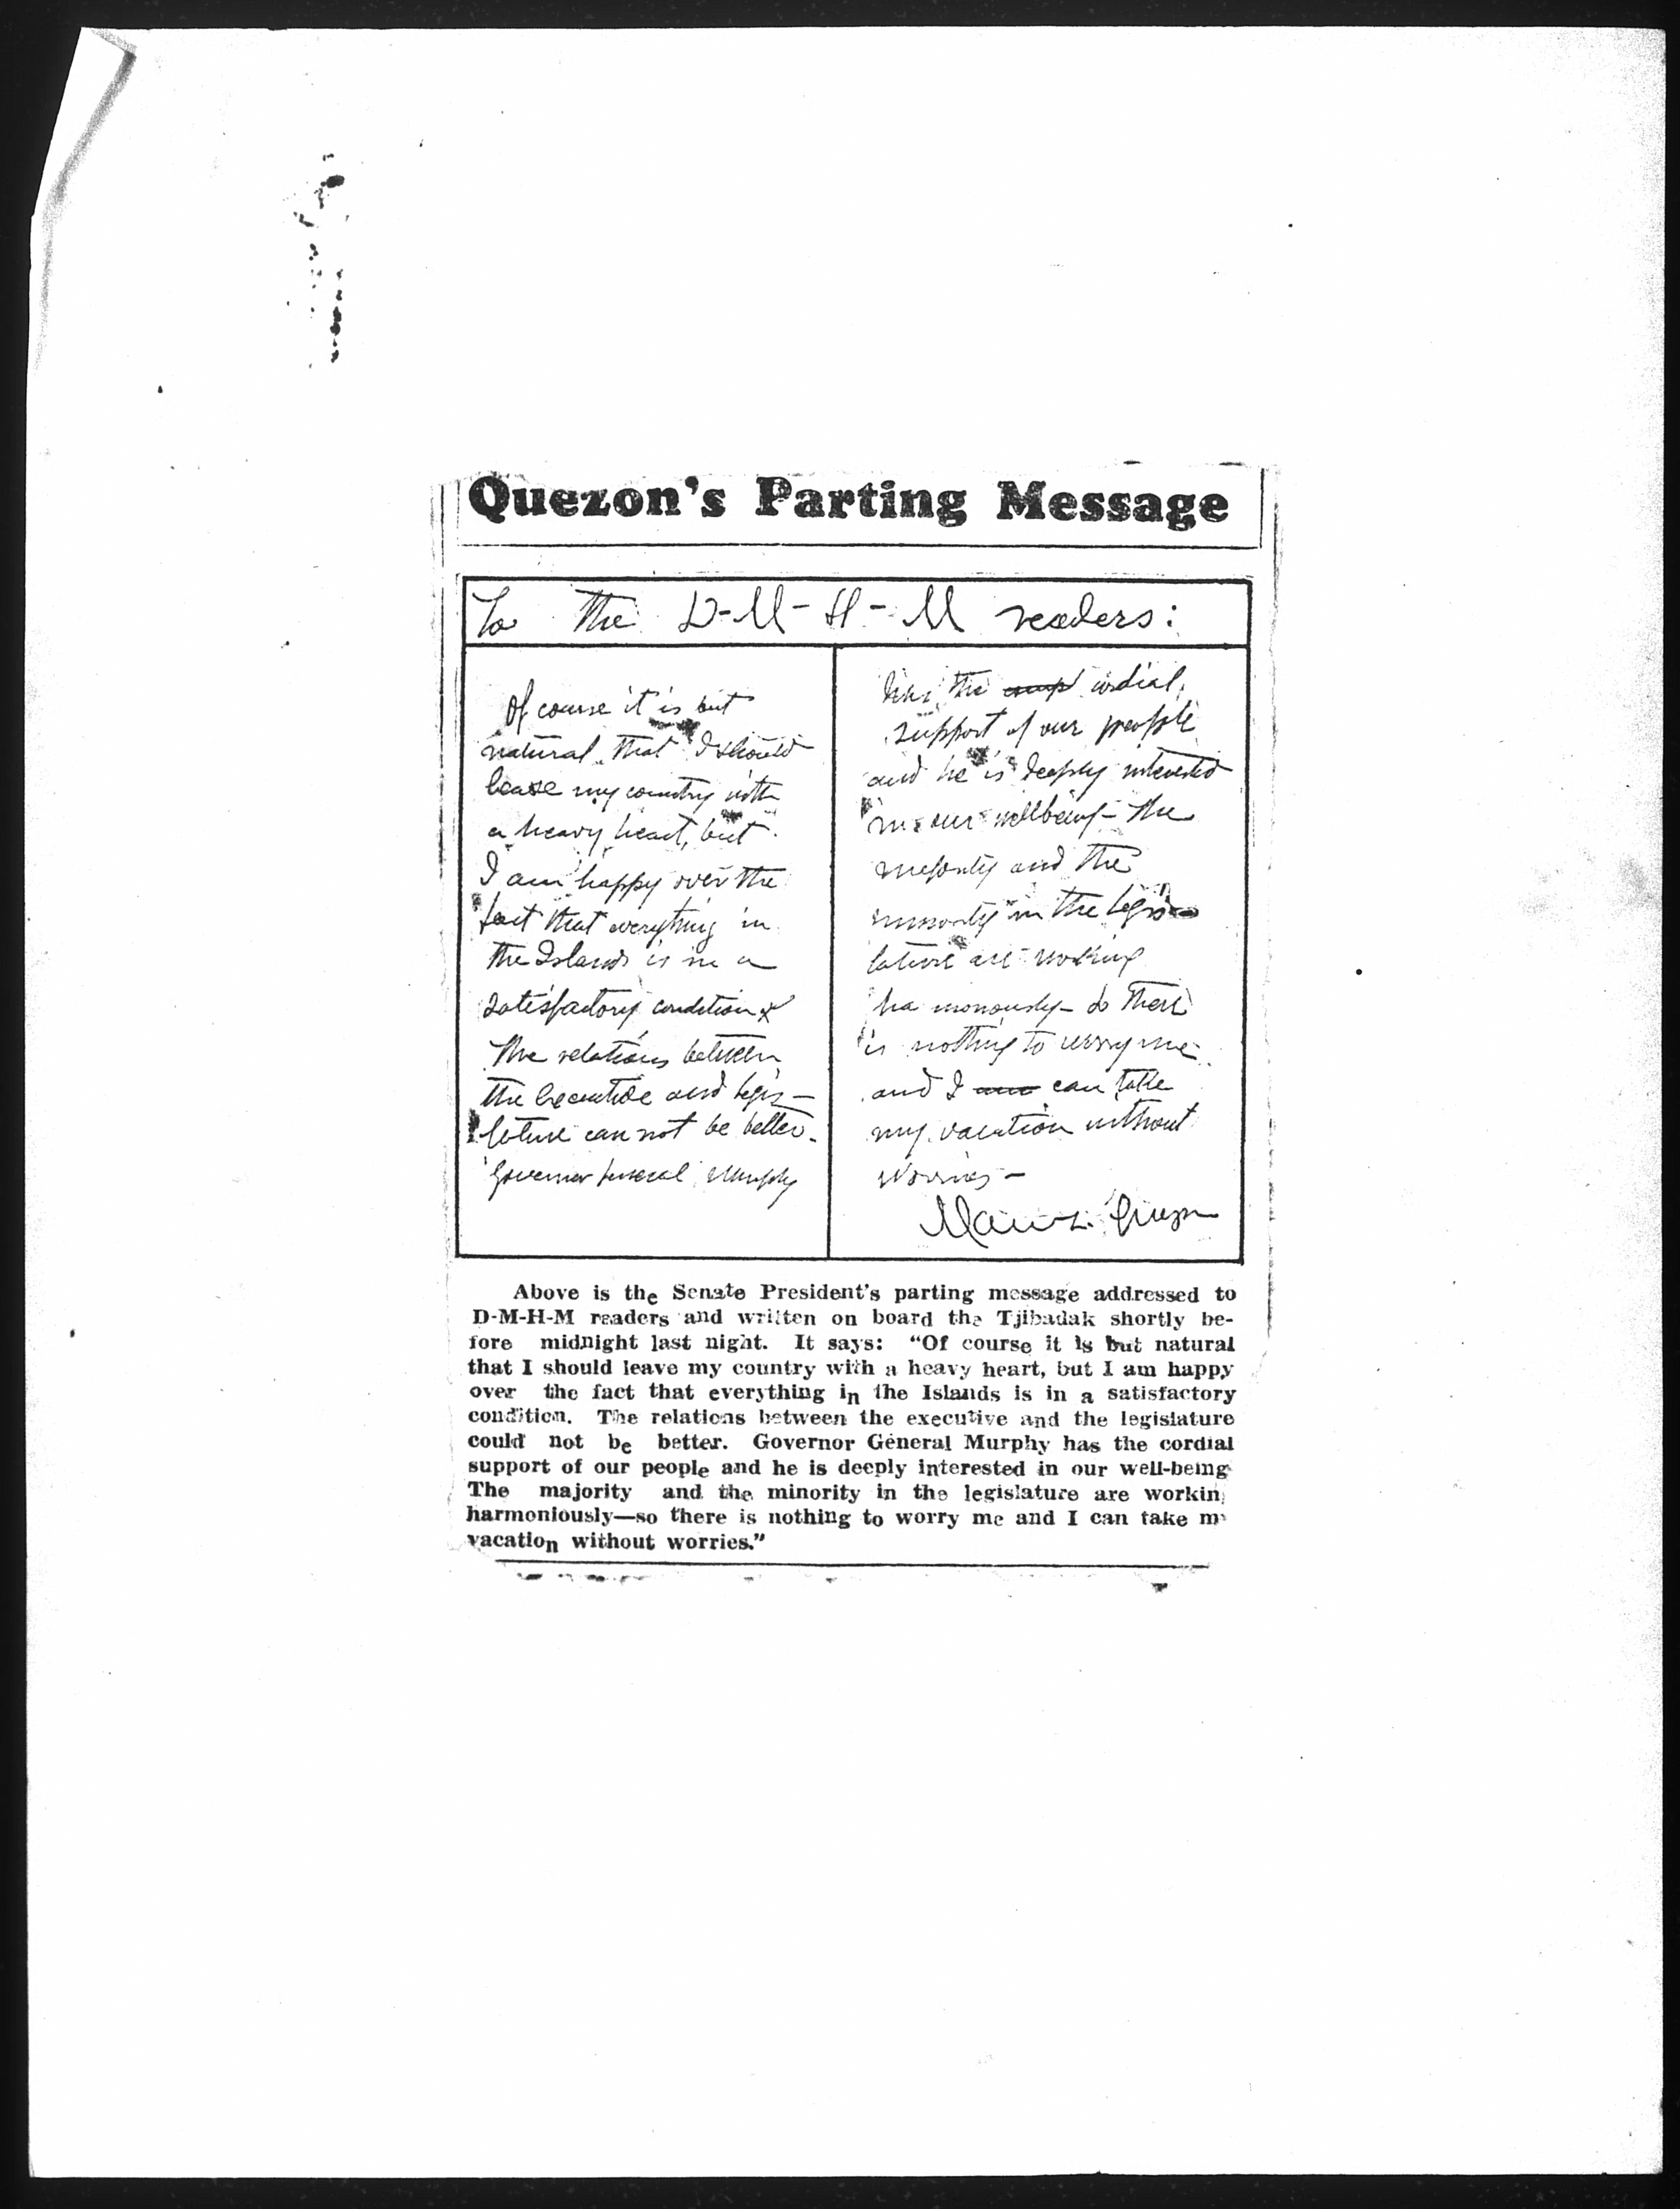 Quezon's Parting Message
To the D-M-H-M readers:
Of course it is but
natural that I should
leave my country with
a heavy heart, but
I am happy over the
fact that everything in
the Islands is in a
satisfactory condition
The relations between
the Executive and legis-
lature can not be better.
Governor General Murphy
has the cordial
support of our people
and he is deeply interested
in our wellbeing- The
majority and the
minority in the legis-
lature are working
harmonously- so there
is nothing to worry me
and I can take
my vacation without
worries-
Manuel L. Quezon
Above is the Senate President's parting message addressed to
D-M-H-M readers and written on board the Tjibadak shortly be-
fore midnight last night. It says: "Of course it is but natural
that I should leave my country with a heavy heart, but I am happy
over the fact that everything in the Islands is in a satisfactory
condition. The relations between the executive and the legislature
could not be better. Governor General Murphy has the cordial
support of our people and he is deeply interested in our well-being
The majority and the minority in the legislature are workin
harmoniously—so there is nothing to worry me and I can take m
vacation without worries."